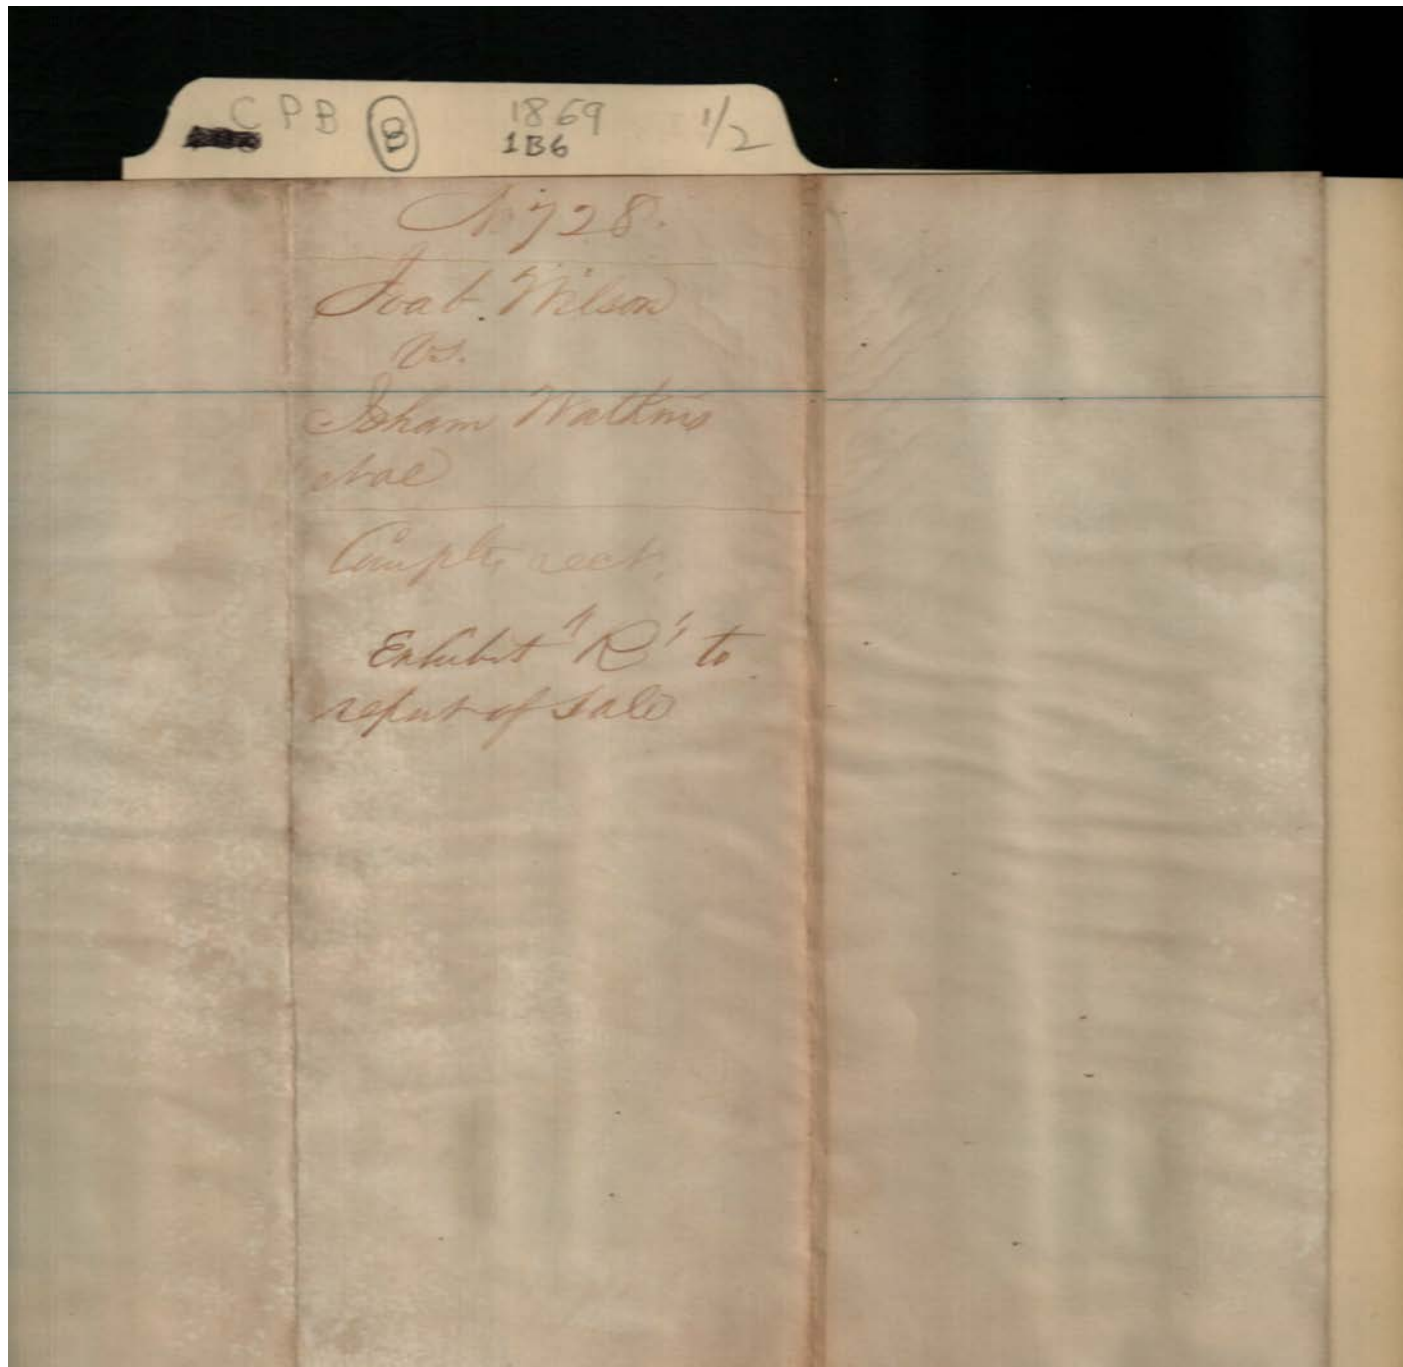 C P B B 1869 1/2
1B6
No 728.
Joab. Wilson
vs.
Isham Watkins
et al
Complts rect.
Exhibit "R" to
report of sale